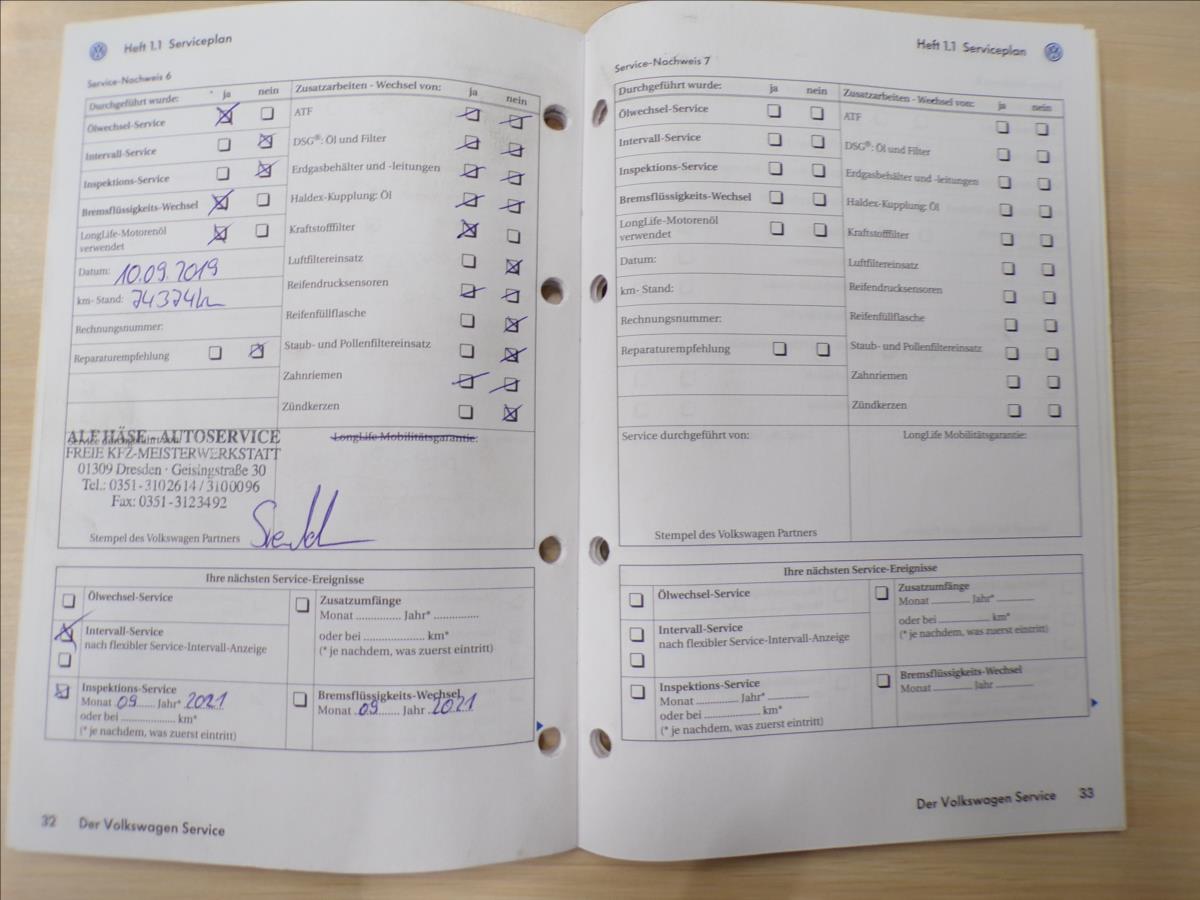 Heft 1.1 Serviceplan
Service-Nachweis 6
Durchgeführt wurde: ja nein
Ölwechsel-Service
Intervall-Service
Inspektions-Service
Bremsflüssigkeits-Wechsel
LongLife-Motorenöl
verwendet
Datum: 10.09.2019
km- Stand:
Rechnungsnummer:
Reparaturempfehlung
Zusatzarbeiten - Wechsel von: ja nein
ATF
DSG®: Öl und Filter
Erdgasbehälter und -leitungen
Haldex-Kupplung: Öl
Kraftstofffilter
Luftfiltereinsatz
Reifendrucksensoren
Reifenfüllflasche
Staub- und Pollenfiltereinsatz
Zahnriemen
Zündkerzen
Service durchgeführt von:
ALF HÄSE - AUTOSERVICE
FREIE KFZ-MEISTERWERKSTATT
01309 Dresden · Geisingstraße 30
Tel.: 0351-3102614 / 3100096
Fax: 0351-3123492
Stempel des Volkswagen Partners
LongLife Mobilitätsgarantie:
Ihre nächsten Service-Ereignisse
Ölwechsel-Service
Intervall-Service
nach flexibler Service-Intervall-Anzeige
Inspektions-Service
Monat 09 Jahr* 2021
oder bei .................... km*
(* je nachdem, was zuerst eintritt)
Zusatzumfänge
Monat ............. Jahr* .............
oder bei .................. km*
(* je nachdem, was zuerst eintritt)
Bremsflüssigkeits-Wechsel
Monat 09 Jahr 2021
32 Der Volkswagen Service
Heft 1.1 Serviceplan
Service-Nachweis 7
Durchgeführt wurde: ja nein
Ölwechsel-Service
Intervall-Service
Inspektions-Service
Bremsflüssigkeits-Wechsel
LongLife-Motorenöl
verwendet
Datum:
km- Stand:
Rechnungsnummer:
Reparaturempfehlung
Zusatzarbeiten - Wechsel von: ja nein
ATF
DSG®: Öl und Filter
Erdgasbehälter und -leitungen
Haldex-Kupplung: Öl
Kraftstofffilter
Luftfiltereinsatz
Reifendrucksensoren
Reifenfüllflasche
Staub- und Pollenfiltereinsatz
Zahnriemen
Zündkerzen
Service durchgeführt von:
Stempel des Volkswagen Partners
LongLife Mobilitätsgarantie:
Ihre nächsten Service-Ereignisse
Ölwechsel-Service
Intervall-Service
nach flexibler Service-Intervall-Anzeige
Inspektions-Service
Monat ............. Jahr* .............
oder bei .................... km*
(* je nachdem, was zuerst eintritt)
Zusatzumfänge
Monat ............. Jahr* .............
oder bei .................. km*
(* je nachdem, was zuerst eintritt)
Bremsflüssigkeits-Wechsel
Monat ............. Jahr .............
Der Volkswagen Service 33